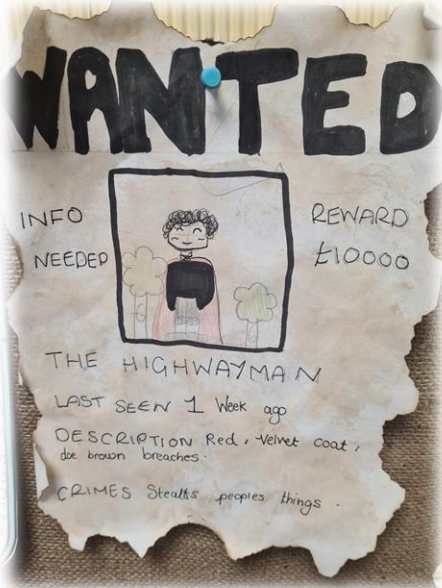 WANTED
INFO
NEEDED
REWARD
£10000
THE HIGHWAYMAN
LAST SEEN 1 Week ago
DESCRIPTION Red, Velvet coat,
doe brown breaches.
CRIMES Stealls peoples things.